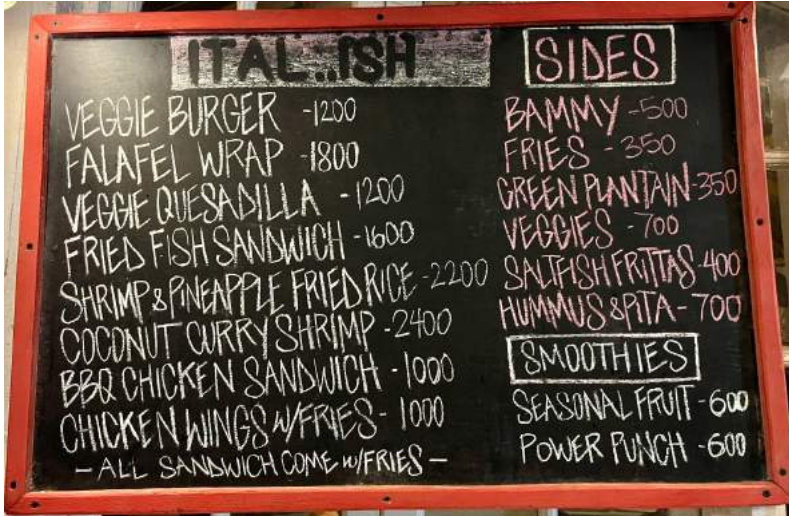 ITAL..ISH
VEGGIE BURGER -1200
FALAFEL WRAP -1800
VEGGIE QUESADILLA -1200
FRIED FISH SANDWICH -1600
SHRIMP & PINEAPPLE FRIED RICE -2200
COCONUT CURRY SHRIMP -2400
BBQ CHICKEN SANDWICH -1000
CHICKEN WINGS W/FRIES -1000
- ALL SANDWICH COME W/FRIES -
SIDES
BAMMY -500
FRIES -350
GREEN PLANTAIN -350
VEGGIES -700
SALTFISH FRITTAS -400
HUMMUS & PITA -700
SMOOTHIES
SEASONAL FRUIT -600
POWER PUNCH -600